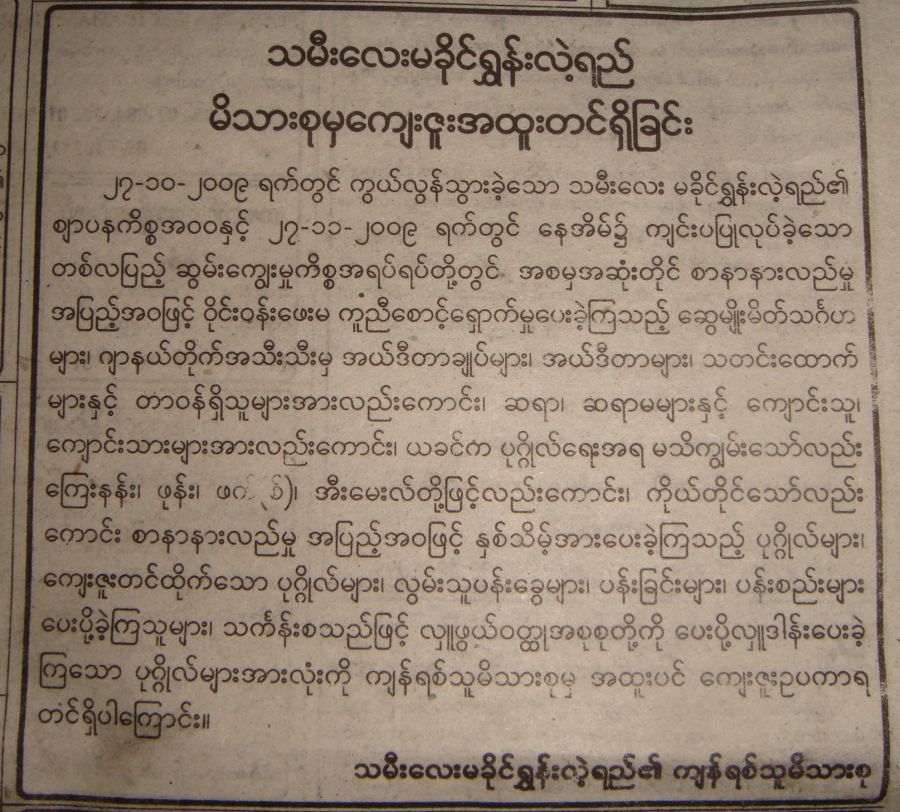 သမီးလေးမခိုင်ရွှန်းလဲ့ရည်
မိသားစုမှကျေးဇူးအထူးတင်ရှိခြင်း
၂၇-၁၀-၂၀၀၉ ရက်တွင် ကွယ်လွန်သွားခဲ့သော သမီးလေး မခိုင်ရွှန်းလဲ့ရည်၏
ဈာပနကိစ္စအဝဝနှင့် ၂၇-၁၁-၂၀၀၉ ရက်တွင် နေအိမ်၌ ကျင်းပပြုလုပ်ခဲ့သော
တစ်လပြည့် ဆွမ်းကျွေးမှုကိစ္စအရပ်ရပ်တို့တွင် အစမှအဆုံးတိုင် စာနာနားလည်မှု
အပြည့်အဝဖြင့် ဝိုင်းဝန်းဖေးမ ကူညီစောင့်ရှောက်မှုပေးခဲ့ကြသည့် ဆွေမျိုးမိတ်သင်္ဂဟ
များ၊ ဂျာနယ်တိုက်အသီးသီးမှ အယ်ဒီတာချုပ်များ၊ အယ်ဒီတာများ၊ သတင်းထောက်
များနှင့် တာဝန်ရှိသူများအားလည်းကောင်း၊ ဆရာ၊ ဆရာမများနှင့် ကျောင်းသူ၊
ကျောင်းသားများအားလည်းကောင်း၊ ယခင်က ပုဂ္ဂိုလ်ရေးအရ မသိကျွမ်းသော်လည်း
ကြေးနန်း၊ ဖုန်း၊ အီးမေးလ်တို့ဖြင့်လည်းကောင်း၊ ကိုယ်တိုင်သော်လည်း
ကောင်း စာနာနားလည်မှု အပြည့်အဝဖြင့် နှစ်သိမ့်အားပေးခဲ့ကြသည့် ပုဂ္ဂိုလ်များ၊
ကျေးဇူးတင်ထိုက်သော ပုဂ္ဂိုလ်များ၊ လွမ်းသူပန်းခွေများ၊ ပန်းခြင်းများ၊ ပန်းစည်းများ
ပေးပို့ခဲ့ကြသူများ၊ သင်္ကန်းစသည်ဖြင့် လှူဖွယ်ဝတ္ထုအစုစုတို့ကို ပေးပို့လှူဒါန်းပေးခဲ့
ကြသော ပုဂ္ဂိုလ်များအားလုံးကို ကျန်ရစ်သူမိသားစုမှ အထူးပင် ကျေးဇူးဥပကာရ
တင်ရှိပါကြောင်း။
သမီးလေးမခိုင်ရွှန်းလဲ့ရည်၏ ကျန်ရစ်သူမိသားစု